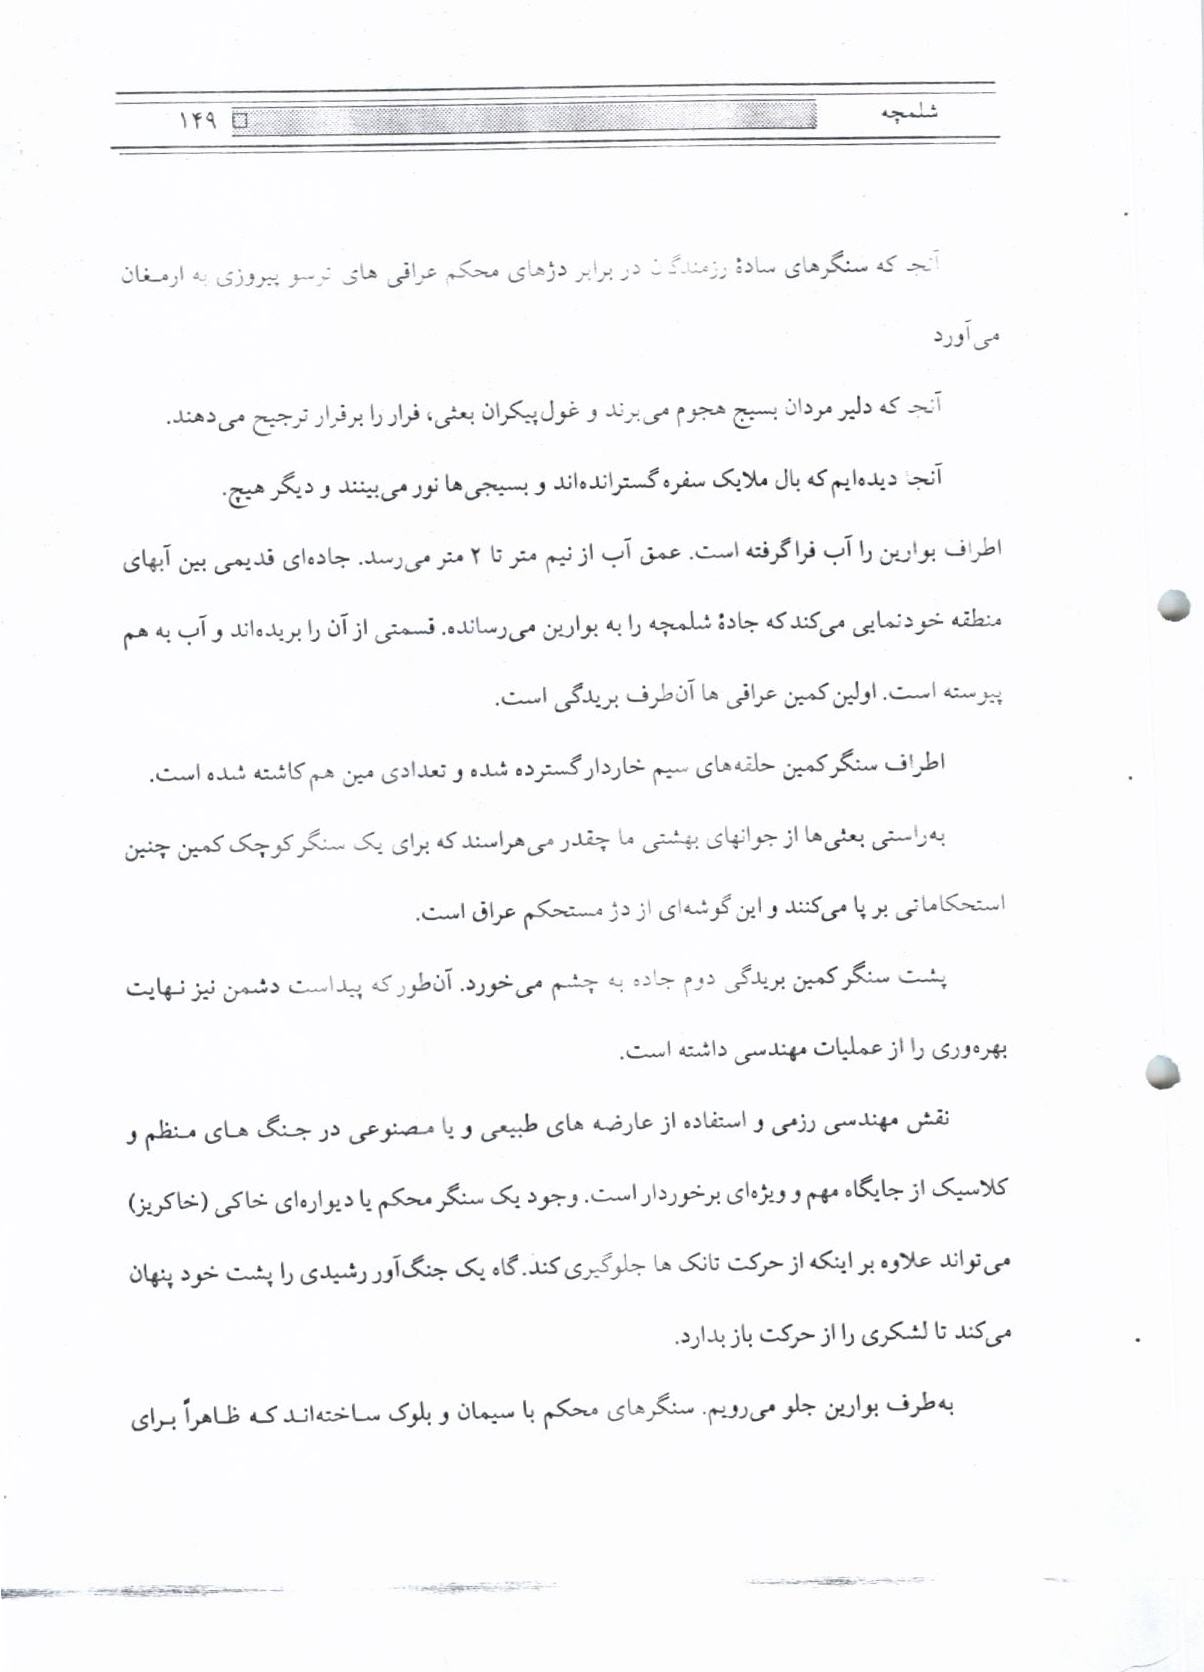 شلمچه
۱۴۹
آنجا که سنگرهای سادهٔ رزمندگان در برابر دژهای محکم عراقی های ترسو پیروزی به ارمغان
می‌آورد
آنجا که دلیر مردان بسیج هجوم می‌برند و غول‌پیکران بعثی، فرار را برقرار ترجیح می‌دهند.
آنجا دیده‌ایم که بال ملایک سفره گسترانده‌اند و بسیجی‌ها نور می‌بینند و دیگر هیچ.
اطراف بوارین را آب فرا گرفته است. عمق آب از نیم متر تا ۲ متر می‌رسد. جاده‌ای قدیمی بین آبهای
منطقه خودنمایی می‌کند که جادهٔ شلمچه را به بوارین می‌رسانده. قسمتی از آن را بریده‌اند و آب به هم
پیوسته است. اولین کمین عراقی ها آن‌طرف بریدگی است.
اطراف سنگر کمین حلقه‌های سیم خاردار گسترده شده و تعدادی مین هم کاشته شده است.
به‌راستی بعثی‌ها از جوانهای بهشتی ما چقدر می‌هراسند که برای یک سنگر کوچک کمین چنین
استحکاماتی بر پا می‌کنند و این گوشه‌ای از دژ مستحکم عراق است.
پشت سنگر کمین بریدگی دوم جاده به چشم می‌خورد. آن‌طور که پیداست دشمن نیز نهایت
بهره‌وری را از عملیات مهندسی داشته است.
نقش مهندسی رزمی و استفاده از عارضه های طبیعی و یا مصنوعی در جنگ های منظم و
کلاسیک از جایگاه مهم و ویژه‌ای برخوردار است. وجود یک سنگر محکم یا دیواره‌ای خاکی (خاکریز)
می‌تواند علاوه بر اینکه از حرکت تانک ها جلوگیری کند. گاه یک جنگ‌آور رشیدی را پشت خود پنهان
می‌کند تا لشکری را از حرکت باز بدارد.
به‌طرف بوارین جلو می‌رویم. سنگرهای محکم با سیمان و بلوک ساخته‌اند که ظاهراً برای